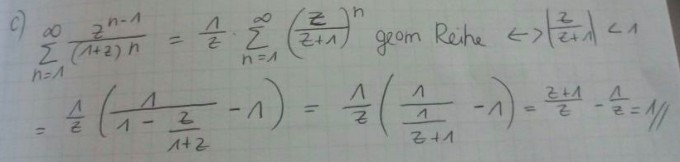 c) \sum_{n=1}^{\infty} \frac{z^{n-1}}{(1+z)^n} = \frac{1}{z} \cdot \sum_{n=1}^{\infty} \left(\frac{z}{z+1}\right)^n geom Reihe <-> \left|\frac{z}{z+1}\right| < 1
= \frac{1}{z} \left( \frac{1}{1 - \frac{z}{1+z}} - 1 \right) = \frac{1}{z} \left( \frac{1}{\frac{1}{z+1}} - 1 \right) = \frac{z+1}{z} - \frac{1}{z} = 1 //